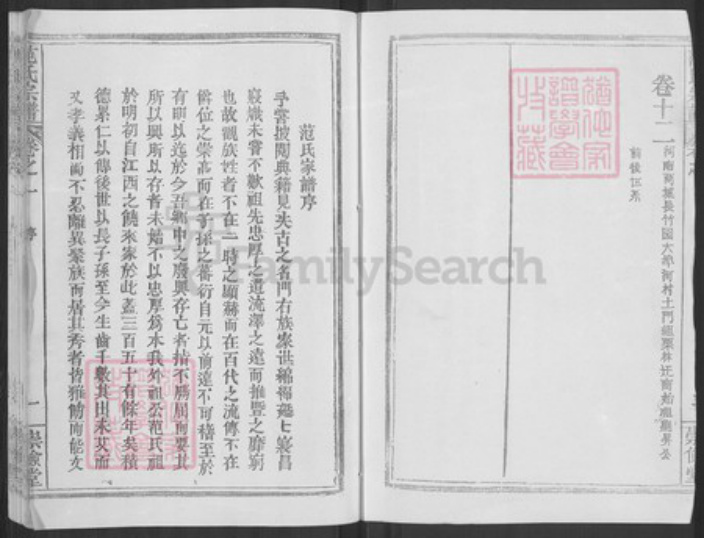 卷十二
河南商城長竹園大埠河村土門組栗林迁商始祖
前後世系
范氏家譜序
予嘗披閱典籍見夫古之名門右族家世綿
熾未嘗不歎祖先忠厚之遺流澤之遠而推暨之靡窮
也故觀族姓者不在一時之顯赫而在百代之流傳不在
爵位之崇高而在子孫之蕃衍自元以前遠不可稽至於
有明以迄於今吾鄉中之廢興存亡者指不勝屈而要其
所以興所以存者未始不以忠厚為本我外祖公范氏祖
於明初自江西之饒來家於此蓋三百五十有餘年矣積
德累仁以傳後世以長子孫至今生齒千數其田未艾而
又孝義相尚不忍離異聚族而居其秀者皆雅飭而能文
范氏宗譜
卷之一
序
一
崇儉堂
FamilySearch